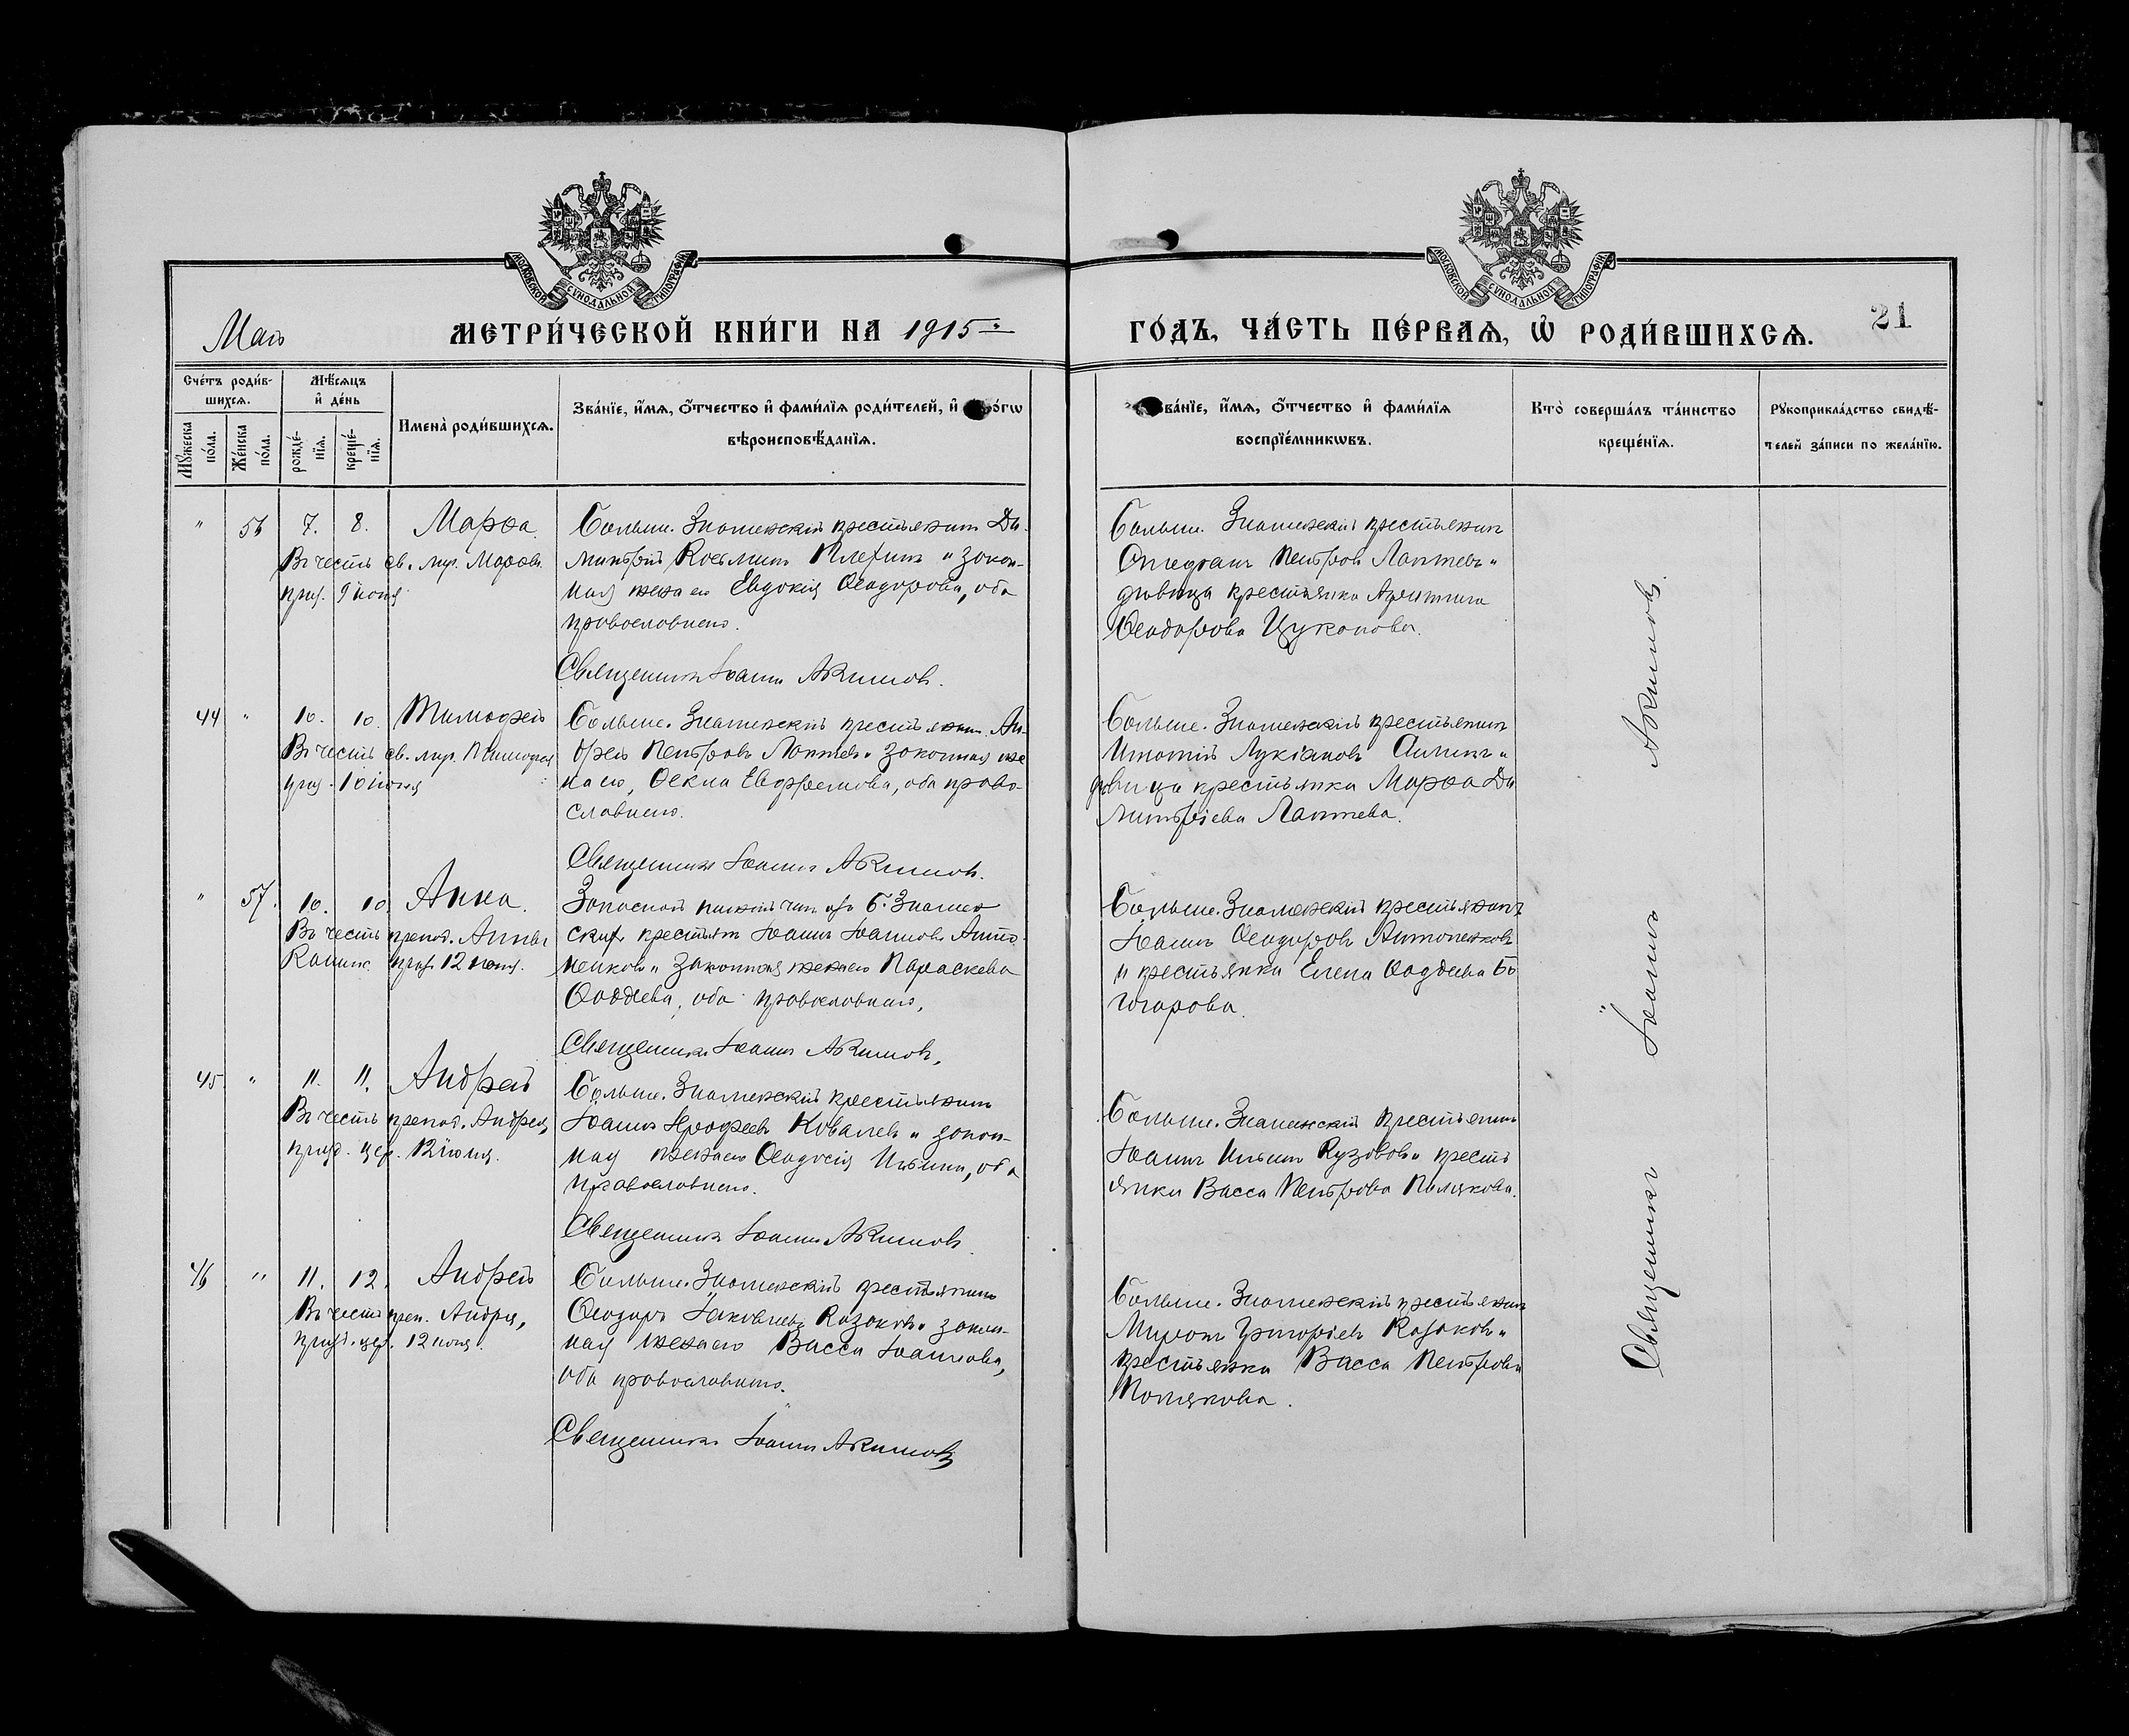 МОСКОВСКОЙ СУНОДАЛЬНОЙ ТИПОГРАФІИ
МОСКОВСКОЙ СУНОДАЛЬНОЙ ТИПОГРАФІИ
Май
МЕТРИ́ЧЕСКОЙ КНИ́ГИ НА 1915
ГО́ДЪ, ЧА́СТЬ ПЕ́РВАѦ, Ѽ РОДИ́ВШИХСѦ.
21
Сче́тъ роди́в-
шихсѧ.
Мꙋ́жеска по́ла.
Же́нска по́ла.
Мѣ́сѧцъ
и҆ де́нь
рожде́-
нїѧ.
креще́-
нїѧ.
Имена̀ роди́вшихсѧ.
Зва́нїе, и҆́мѧ, о҆́тчество и҆ фами́лїѧ роди́телей, и҆
вѣроисповѣ́данїѧ.
и҆́мѧ, о҆́тчество и҆ фами́лїѧ
воспрїе́мникѡвъ.
Кто̀ соверша́лъ та́инство
креще́нїѧ.
Рꙋкоприкла́дство свидѣ́-
телей за́писи по жела́нїю.
" 56 7. 8. Марѳа.
Въ честь св. мир. Марѳы
9 іюня
Больше. Знаменскій крестьянинъ Ди-
митрій Косьминъ Плехинъ и закон-
ная жена его Евдокія Ѳеодорова, оба
православные.
Священникъ Іоаннъ Акимовъ.
Больше. Знаменскій крестьянинъ
Стефанъ Петровъ Лаптевъ и
дѣвица крестьянка
Ѳеодорова Цуканова.
44 " 10. 10. Тимоѳей
Въ честь св. мир. Тимоѳея
10 іюня
Больше. Знаменскій крестьянинъ Ан-
дрей Петровъ Лаптевъ и законная же
на его, Ѳекла Евфремова, оба право-
славные.
Священникъ Іоаннъ Акимовъ.
Больше. Знаменскій крестьянинъ
Лукіановъ и
дѣвица крестьянка Марѳа Ди
митріева Лаптева.
" 57. 10. 10. Анна.
Въ честь препод. Анны
Кашин. 12 іюня.
Запасной нижній чинъ изъ Б. Знамен
скихъ крестьянъ Іоаннъ Іоанновъ Анто-
ненковъ и законная жена его Параскева
Ѳаддѣева, оба православные,
Священникъ Іоаннъ Акимовъ,
Больше. Знаменскій крестьянинъ
Іоаннъ Ѳеодоровъ Антоненковъ
и крестьянка Елена Ѳаддеева Бо
чарова.
45 " 11. 11. Андрей
Въ честь препод. Андрея,
12 іюня.
Больше. Знаменскій крестьянинъ
Іоаннъ Ковалевъ и закон-
ная жена его Ѳеодосія Ильина, оба
православные.
Священникъ Іоаннъ Акимовъ.
Больше. Знаменскій крестьянинъ
Іоаннъ Ильинъ Кузововъ и кресть
янка Васса Петрова Полякова.
46 " 11. 12. Андрей
Въ честь преп. Андрея,
12 іюня.
Больше. Знаменскій крестьянинъ
Ѳеодоръ Іаковлевъ Казаковъ и закон-
ная жена его Васса Іоаннова,
оба православные.
Священникъ Іоаннъ Акимовъ
Больше. Знаменскій крестьянинъ
Миронъ Григоріевъ Казаковъ и
крестьянка Васса Петрова
Полякова.
Священникъ Іоаннъ Акимовъ.